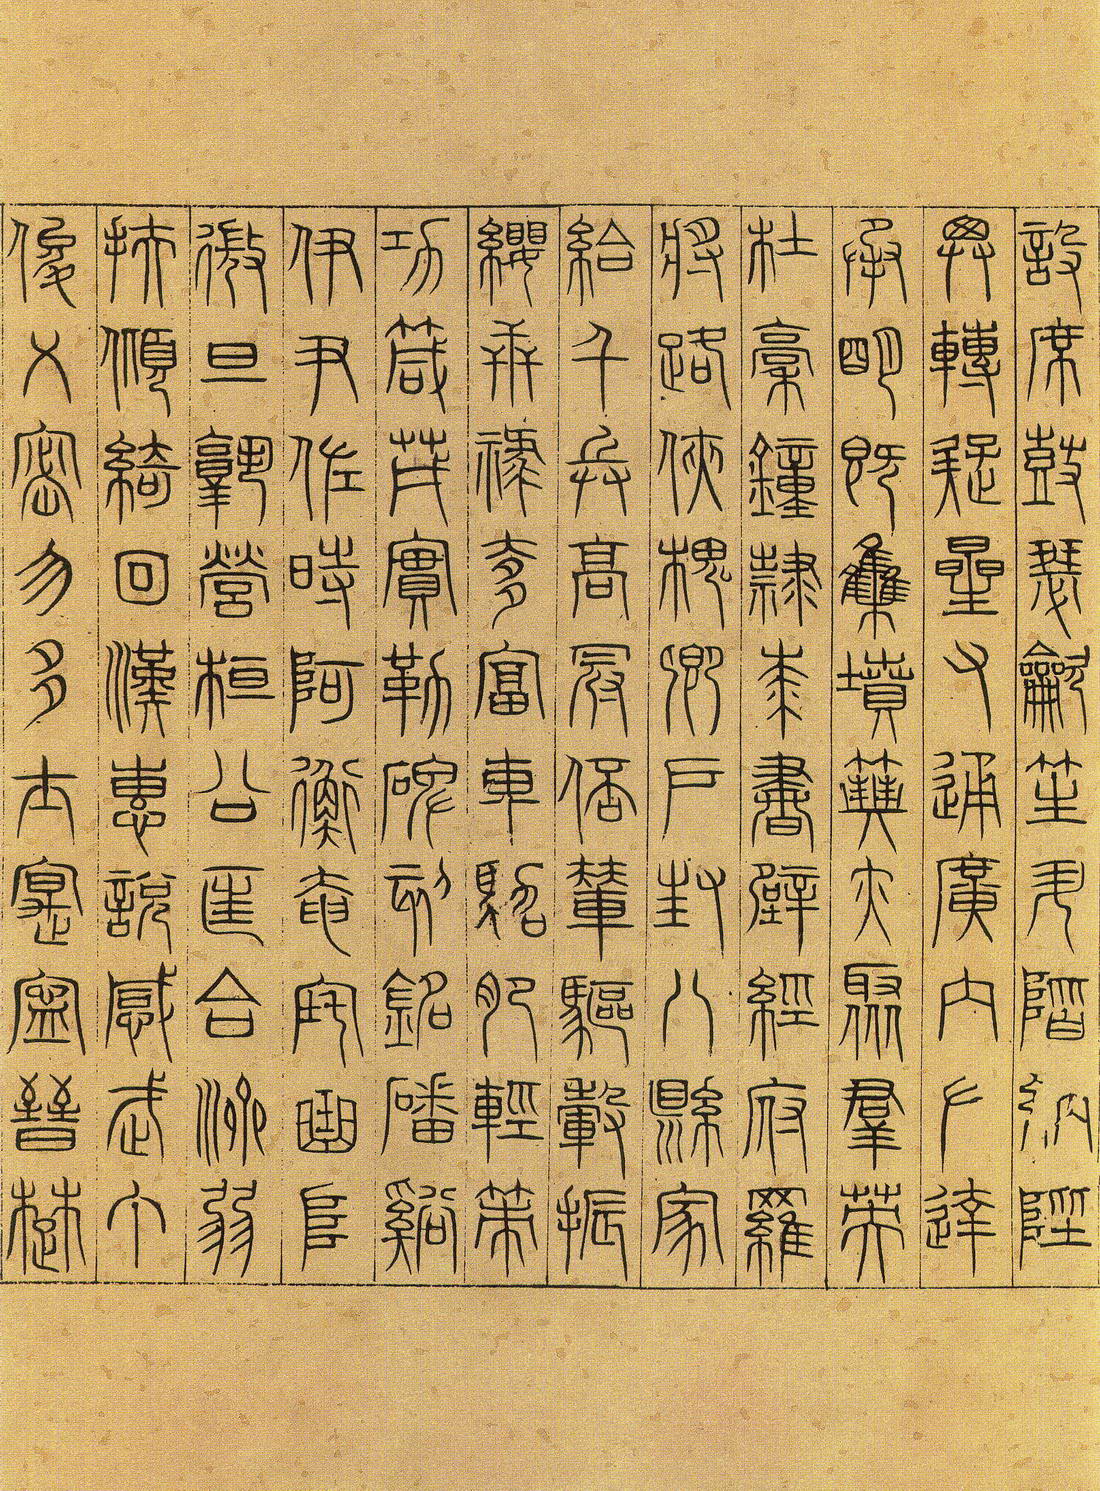 設席鼓瑟龡笙升階納陛
弁轉疑星右通廣內左達
承明既集墳典亦聚群英
杜稾鐘隸桼書壁經府羅
將路俠槐卿戶封八縣家
給千兵高冠倍輦驅轂振
纓世祿侈富車駕肥輕策
功茂實勒碑刻銘磻谿
伊尹佐時阿衡奄宅曲阜
微旦孰營桓公匡合濟弱
扶傾綺回漢惠說感武丁
俊乂密勿多士寔寧晉楚